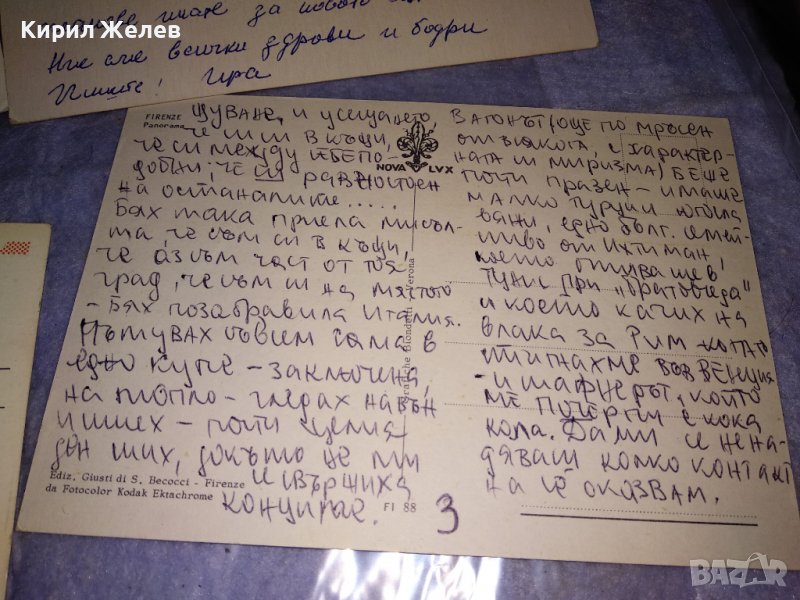 Кирил Желев
планове имате за новото
Ние сме всички здрави и бодри
Пишете! Ира
FIRENZE
Panorama
ЩУВАНЕ, И УСЕЩАНЕТО,
ЧЕ СИ СИ В КЪЩИ,
ЧЕ СИ МЕЖДУ СЕБЕПО-
ДОБНИ, ЧЕ СИ РАВНОСТОЕН
НА ОСТАНАЛИТЕ.....
БЯХ ТАКА ПРИЕЛА МИСЪЛ-
ТА, ЧЕ СЪМ СИ В КЪЩИ,
ЧЕ АЗ СЪМ ЧАСТ ОТ ТОЯ
ГРАД, ЧЕ СЪМ СИ НА МЯСТОТО
- БЯХ ПОЗАБРАВИЛА ИТАЛИЯ.
ПЪТУВАХ СЪВСЕМ САМА В
ЕДНО КУПЕ - ЗАКЛЮЧЕН,
НА ТОПЛО - ГЛЕДАХ НАВЪН
И ПИШЕХ - ПОЧТИ ЦЕЛИЯ
ДЕН ПИХ, ДОКЪТО НЕ МИ
И СВЪРШИХА
КОНЦИТЕ.
NOVA LVX
ВАГОНЪТ (ОЩЕ ПО МРЪСЕН
ОТ ВСЯКОГА, С ХАРАКТЕР-
НАТА СИ МИРИЗМА) БЕШЕ
ПОЧТИ ПРАЗЕН - ИМАШЕ
МАЛКО ТУРЦИ ЮГОСЛА
ВЯНИ, ЕДНО БЪЛГ. СЕМЕЙ-
СТВО ОТ ИХТИМАН,
КОЕТО ОТИВАШЕ В
ТУНИС ПРИ "БРАТОВЧЕДА"
И КОЕТО КАЧИХ НА
ВЛАКА ЗА РИМ КОГАТО
СТИГНАХМЕ ВЪВ ВЕНЕЦИЯ
- И ШАФНЕРЪТ, КОЙТО
МЕ ПОЧЕРПИ С КОКА
КОЛА. ДА МИ СЕ НЕНА-
ДЯВАШ КОЛКО КОНТАКТ
НА СЕ ОКАЗВАМ.
Blondetti - Verona
Ediz. Giusti di S. Becocci - Firenze
da Fotocolor Kodak Ektachrome
FI 88
3
BAZAR